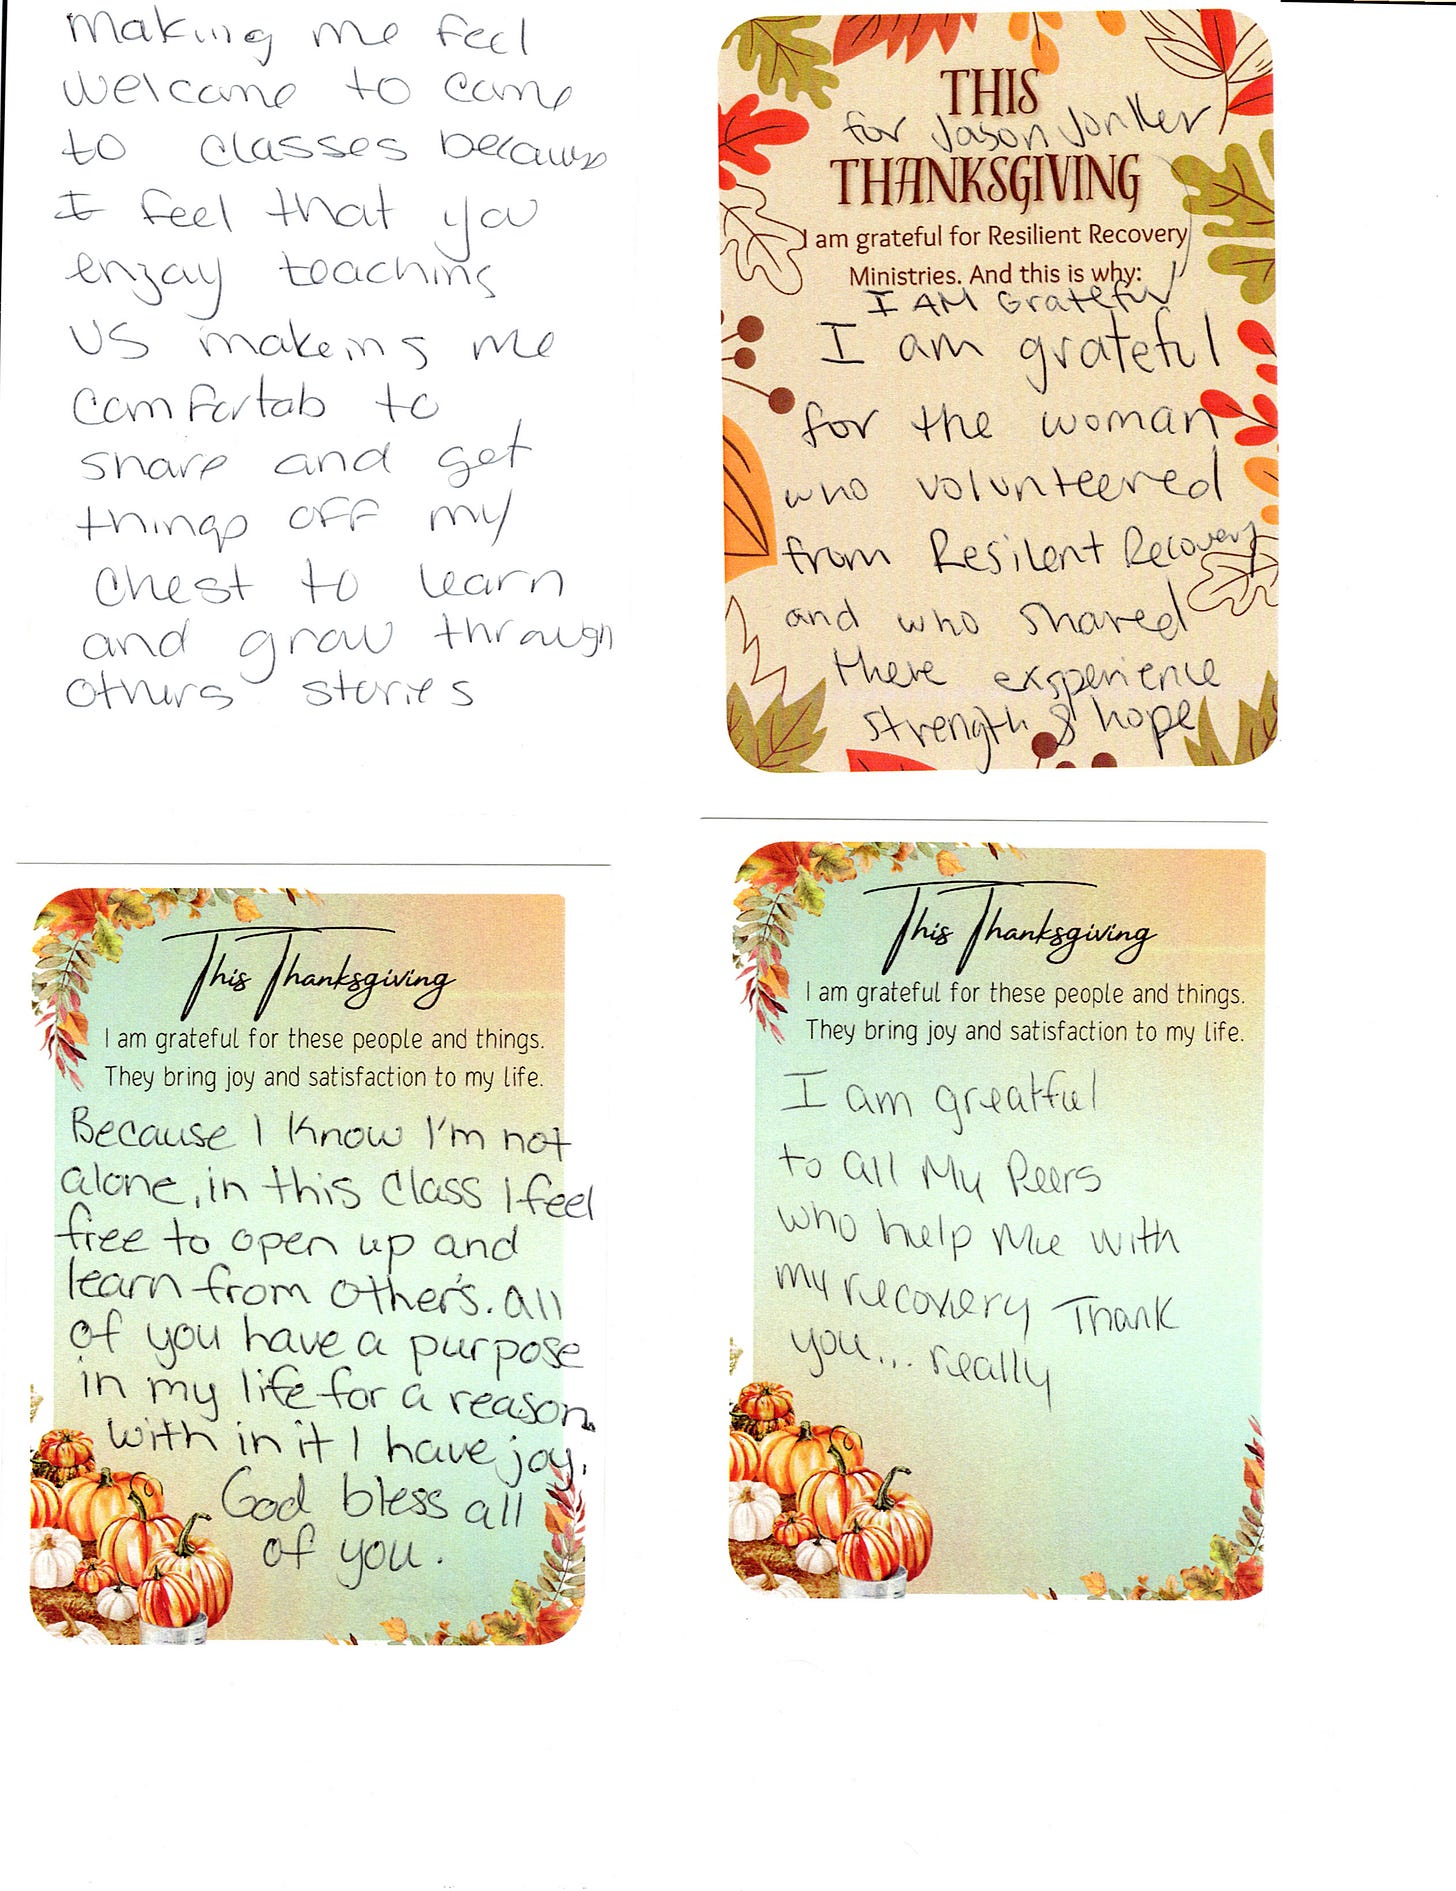 making me feel
welcome to come
to classes because
I feel that you
enjoy teaching
US makeing me
comfortab to
share and get
things off my
chest to learn
and grow through
others stories
THIS
for Jason Jonker
THANKSGIVING
I am grateful for Resilient Recovery
Ministries. And this is why:
I AM Grateful
I am grateful
for the woman
who volunteered
from Resilent Recovery
and who shared
there exsperience
strength & hope
This Thanksgiving
I am grateful for these people and things.
They bring joy and satisfaction to my life.
Because I know I'm not
alone, in this class I feel
free to open up and
learn from other's. all
of you have a purpose
in my life for a reason.
with in it I have joy.
God bless all
of you.
This Thanksgiving
I am grateful for these people and things.
They bring joy and satisfaction to my life.
I am greatful
to all My Peers
who help Me with
my recovery Thank
you... really